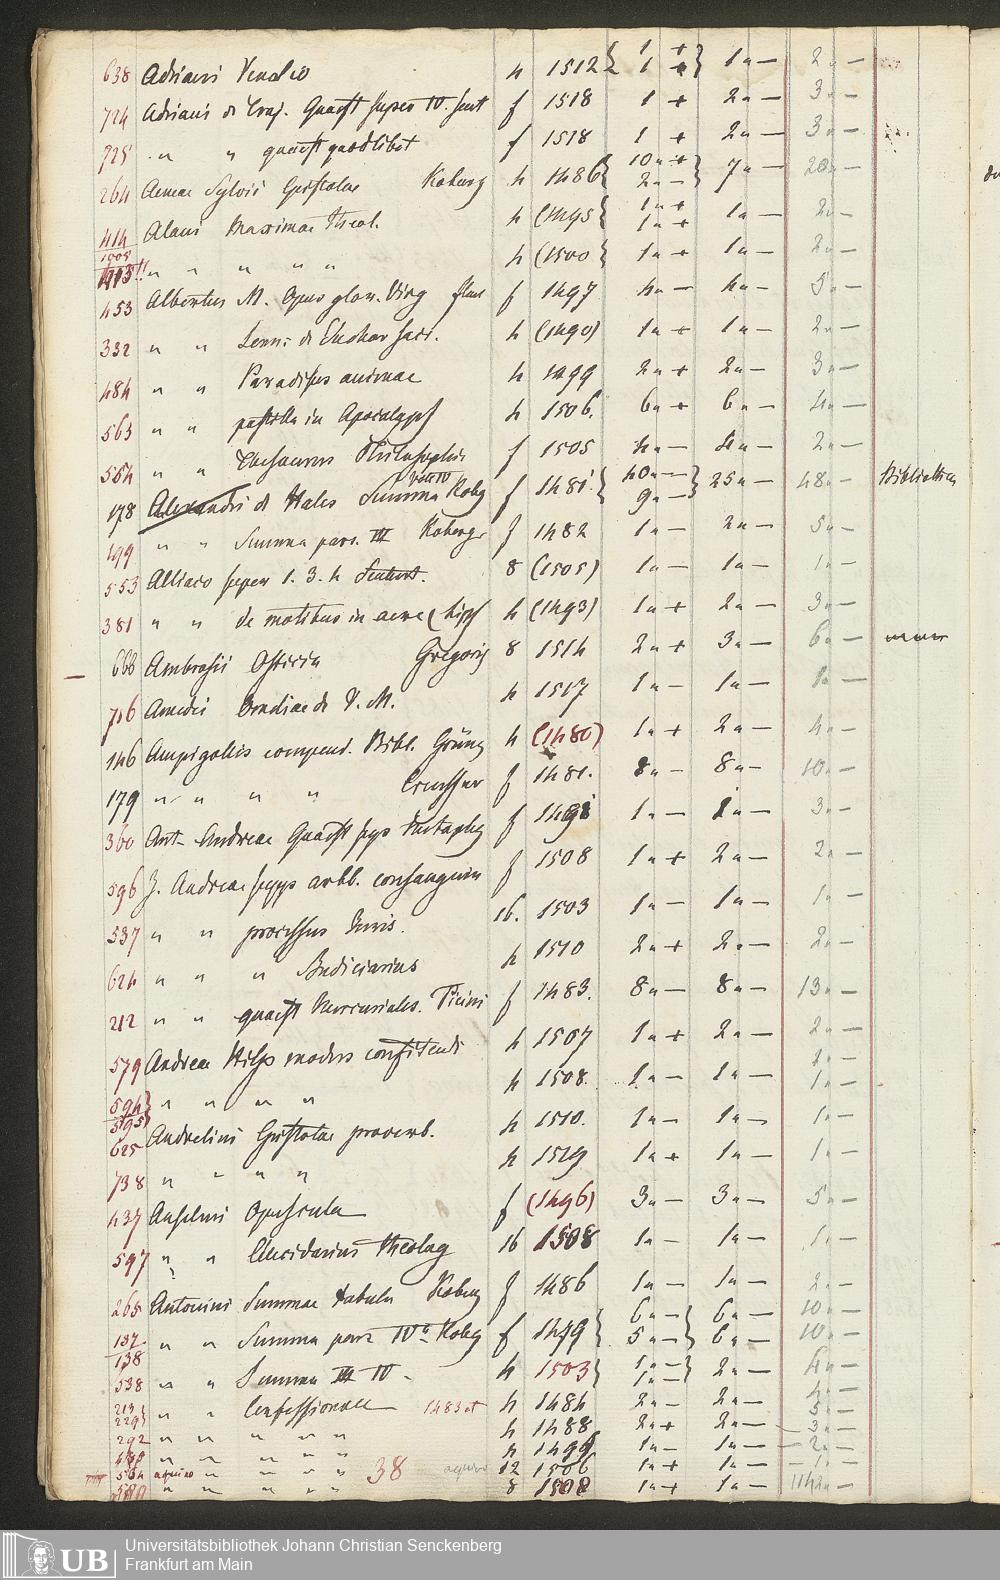 638 Adriani Venatio 4 1512 { 1 + 1 + } 1 " — 2 " —
724 Adriani de Traj. Quaest super IV. Sent f 1518 1 + 2 " — 3 " —
725 " " quaest quodlibet f 1518 1 + 2 " — 3 " —
264 Aeneae Sylvii Epistolae Koburg 4 1486 { 10 " + 2 " — } 7 " — 20 " —
414 Alani Maximae Theol. 4 (1495 { 1 " + 1 " + 1 " — 2 " —
" " " " " 4 (1500 } 1 " + 1 " — 2 " —
453 Albertus M. Opus glor. Virg f 1497 4 " — 4 " — 5 " —
332 " " Serm: de Euchar sacr. 4 (1490) 1 " + 1 " — 2 " —
484 " " Paradisus animae 4 1499 2 " + 2 " — 3 " —
563 " " postilla in Apocalyps 4 1506. 6 " + 6 " — 4 " —
554 " " Thesaurus Philosophie f 1505 4 " — 4 " — 2 " —
178 Alexandri de Hales Summa Kobg f 1481. { 40 " — 9 " — } 25 " — 48 " — Bibliotheca
199 " " Summa pars. III Koberger f 1482 1 " — 2 " — 5 " —
553 Alliaco super 1. 3. 4 Sentent. 8 (1505) 1 " — 1 " — 1 " —
381 " " de motibus in aere (Lips 4 (1493) 1 " + 2 " — 3 " —
668 Ambrosii Gregorii 8 1514 2 " + 3 " — 6 " —
716 Amedei de V. M. 4 1517 1 " — 1 " — 1 " —
146 Ampigollis compend. Bibl. Grüng 4 (1480) 1 " + 2 " — 4 " —
179 " " " " Creussner f 1481. 8 " — 8 " — 10 " —
360 Ant. Andreae Quaest sup metaphy f 1 " — 3 " —
596 J. Andreae super arbb. consanguin f 1508 1 " + 2 " — 2 " —
537 " " processus Juris. 16. 1503 1 " — 1 " — 1 " —
624 " " " Judiciarius 4 1510 2 " + 2 " — 2 " —
212 " " quaest Mercuriales. Ticini f 1483. 8 " — 8 " — 13 " —
579 Andreae Hisp modus confitendi 4 1507 1 " + 2 " — 2 " —
594 595 } " " " " 4 1508. 1 " — 1 " — 1 " —
625 Andrelini Epistolae proverb. 4 1510. 1 " — 1 " — 1 " —
738 " " " " 4 1519 1 " + 1 " — 1 " —
437 Anselmi Opuscula f (1496) 3 " — 3 " — 5 " —
597 " " Elucidarius theolog 16 1508 1 " — 1 " — 1 " —
265 Antonini Summae tabula Koburg f 1486 1 " — 1 " — 2 " —
137 138 " " Summa pars IVa Kobg f 1479 { 6 " — 5 " — } 6 " — 6 " — 10 " — 10 " —
538 " " Summa III IV 4 1503 { 1 " — 1 " — } 2 " — 4 " —
213 229 } " " Confessionale 1483 et 4 1484 2 " — 2 " — 5 " —
292 " " " " " 4 1488 2 " + 2 " — 3 " —
" " " " 4 1499 1 " — 1 " — 2 " —
564 aquino " " " " 38 aquino 12 1506 1 " + 1 " — 1 " —
" " " " " 8 1508 1 " + 1 " —
UB Universitätsbibliothek Johann Christian Senckenberg
Frankfurt am Main